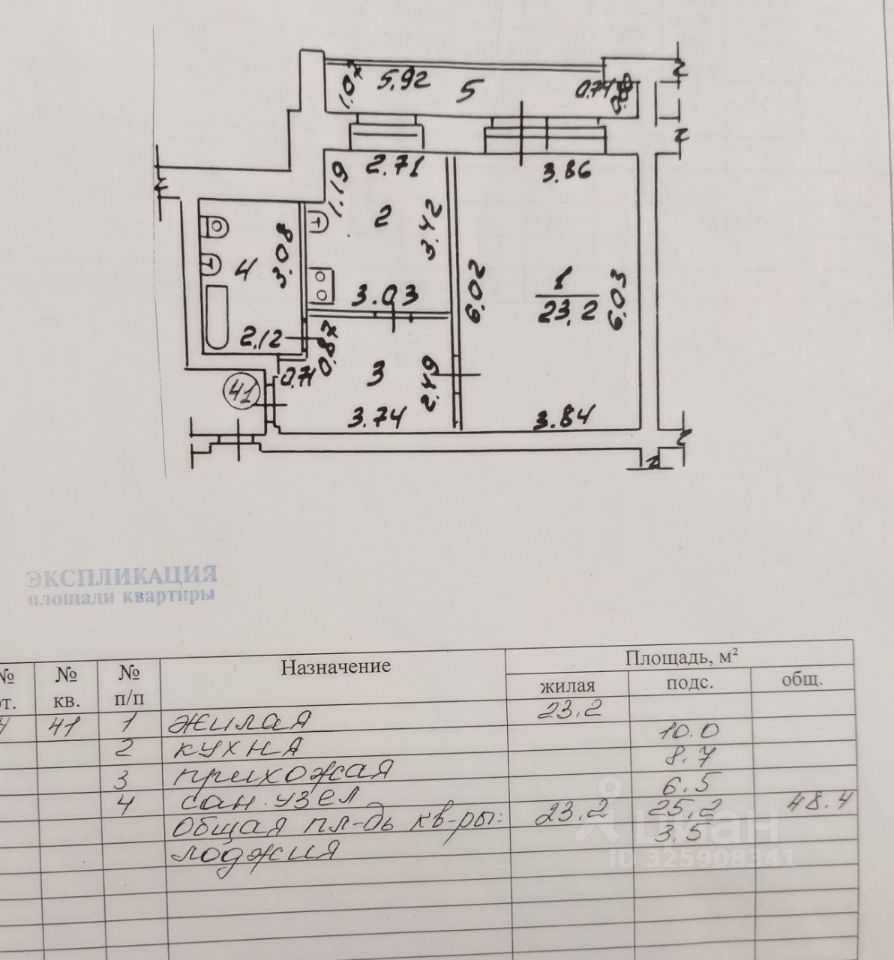 5.92 5
1.07
0.74
2.71 3.86
1.19
2
3.42
3.08
4
1
23,2
6.02
6.03
3.03
2.12
0.87
0.71
3
2.49
41
3.74 3.84
ЭКСПЛИКАЦИЯ
площади квартиры
№ № № Назначение Площадь, м²
эт. кв. п/п жилая подс. общ.
4 41 1 жилая 23,2
2 кухня 10.0
3 прихожая 8.7
4 сан.узел 6.5
общая пл-дь кв-ры: 23,2 25,2 48.4
лоджия 3.5
Циан
ID 325908341